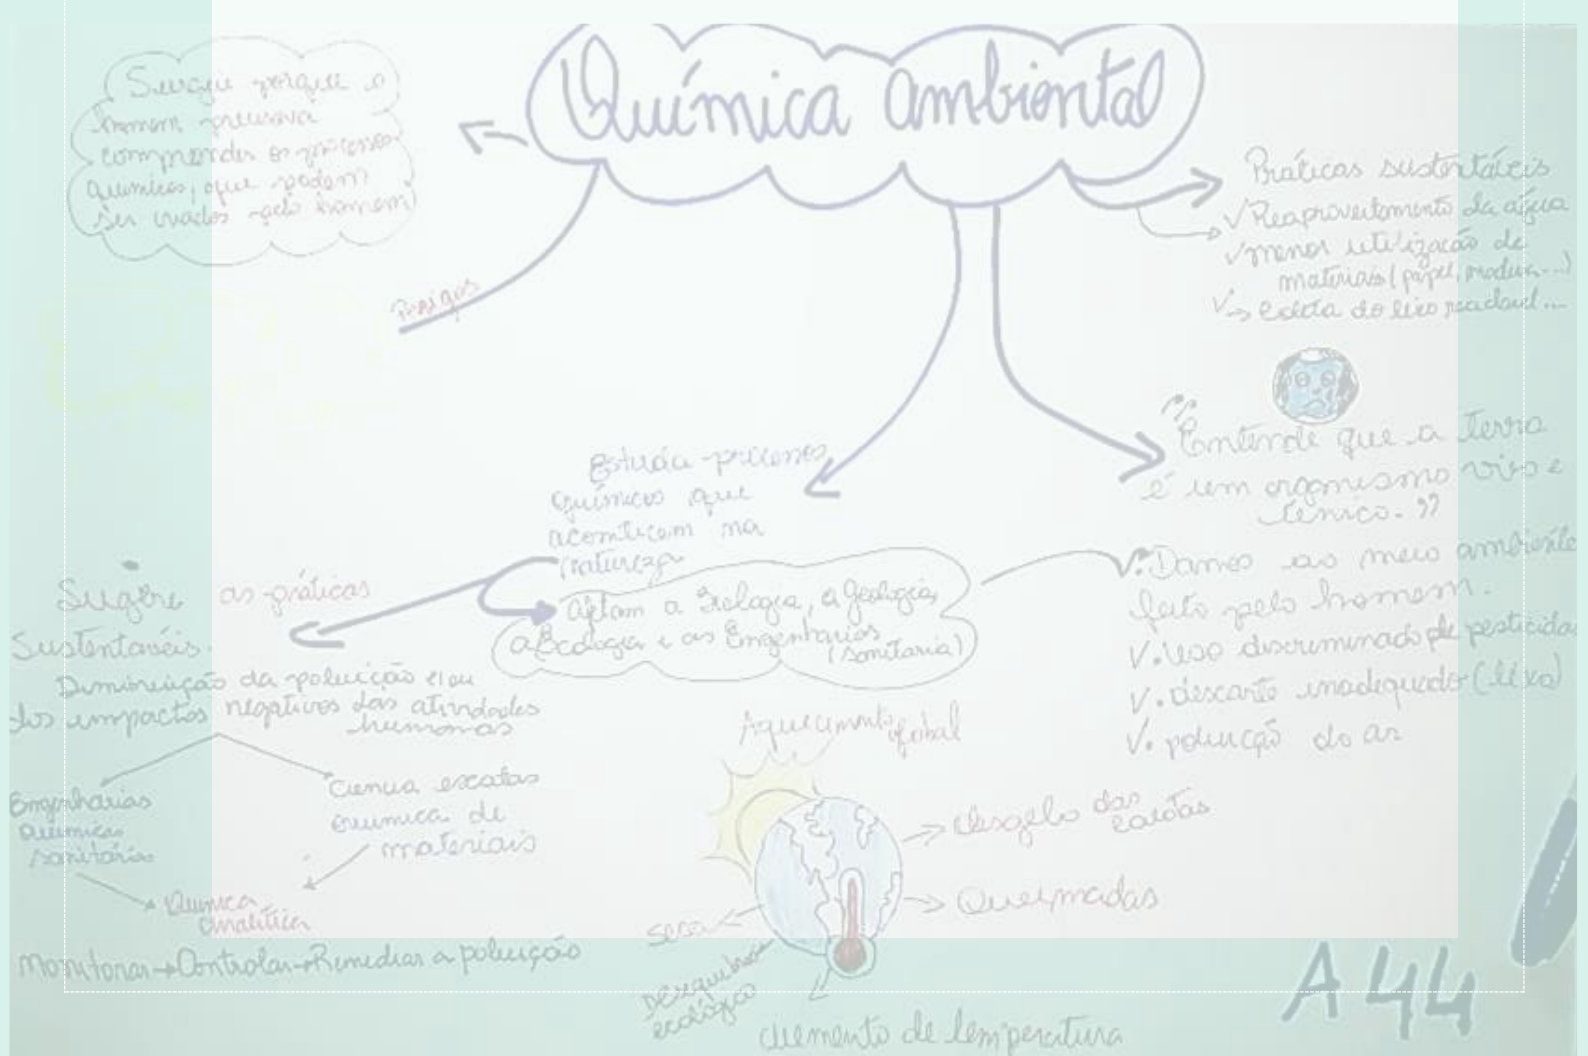 Química ambiental
Surgiu porque o
homem precisava
compreender os processos
químicos, que podem
ser criados pelo homem
Práticas sustentáveis
✓ Reaproveitamento da água
✓ menor utilização de
materiais (papel, madeira...)
✓→ Coleta do lixo reciclável...
Perigos
"Entende que a terra
é um organismo vivo e
"
Estuda processos
químicos que
acontecem na
natureza
afetam a Biologia, a Geologia,
a Ecologia e as Engenharias
(sanitaria)
✓. Danos ao meio ambiente
feito pelo homem.
✓. uso discriminado de pesticida
✓. descarte inadequado (lixo)
✓. poluição do ar
Sugere as práticas
Sustentavéis.
Diminuição da poluição e/ou
dos impactos negativos das atividades
humanas
Engenharias
químicas
sanitárias
Ciencia exatas
química de
materiais
Química
analítica
Monitorar→Controlar→Remediar a poluição
Aquecimento global
desgelo das
calotas
Queimadas
seca
Desequilíbrio
ecológico
Aumento de temperatura
A 44